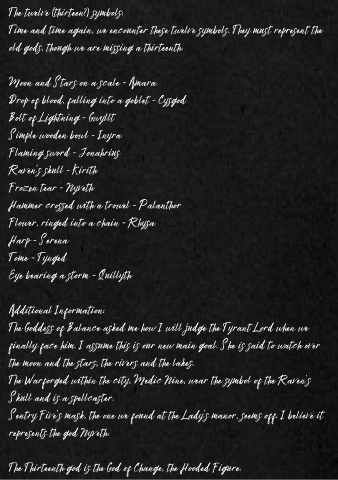 The twelve (thirteen?) symbols:
Time and time again, we encounter these twelve symbols. They must represent the
old gods, though we are missing a thirteenth

Moon and Stars on a scale - Amara
Drop of blood, falling into a goblet - Cysgod
Bolt of Lightning - Gwyllt
Simple wooden bowl - Inyra
Flaming sword - Jonahrius
Raven's skull - Kirith
Frozen tear - Nyveth
Hammer crossed with a trowel - Palanthor
Flower, ringed into a chain - Rhysa
Harp - Serena
Tome - Tynged
Eye bearing a storm - Quillyth

Additional Information:
The Goddess of Balance asked me how I will judge the Tyrant Lord when we
finally face him. I assume this is our new main goal. She is said to watch over
the moon and the stars, the rivers and the lakes.
The Warforged within the city, Medic Nine, wear the symbol of the Raven's
Skull and is a spellcaster.
Sentry Five's mask, the one we found at the Lady's manor, seems off. I believe it
represents the god Nyveth.

The Thirteenth god is the God of Change, the Hooded Figure.